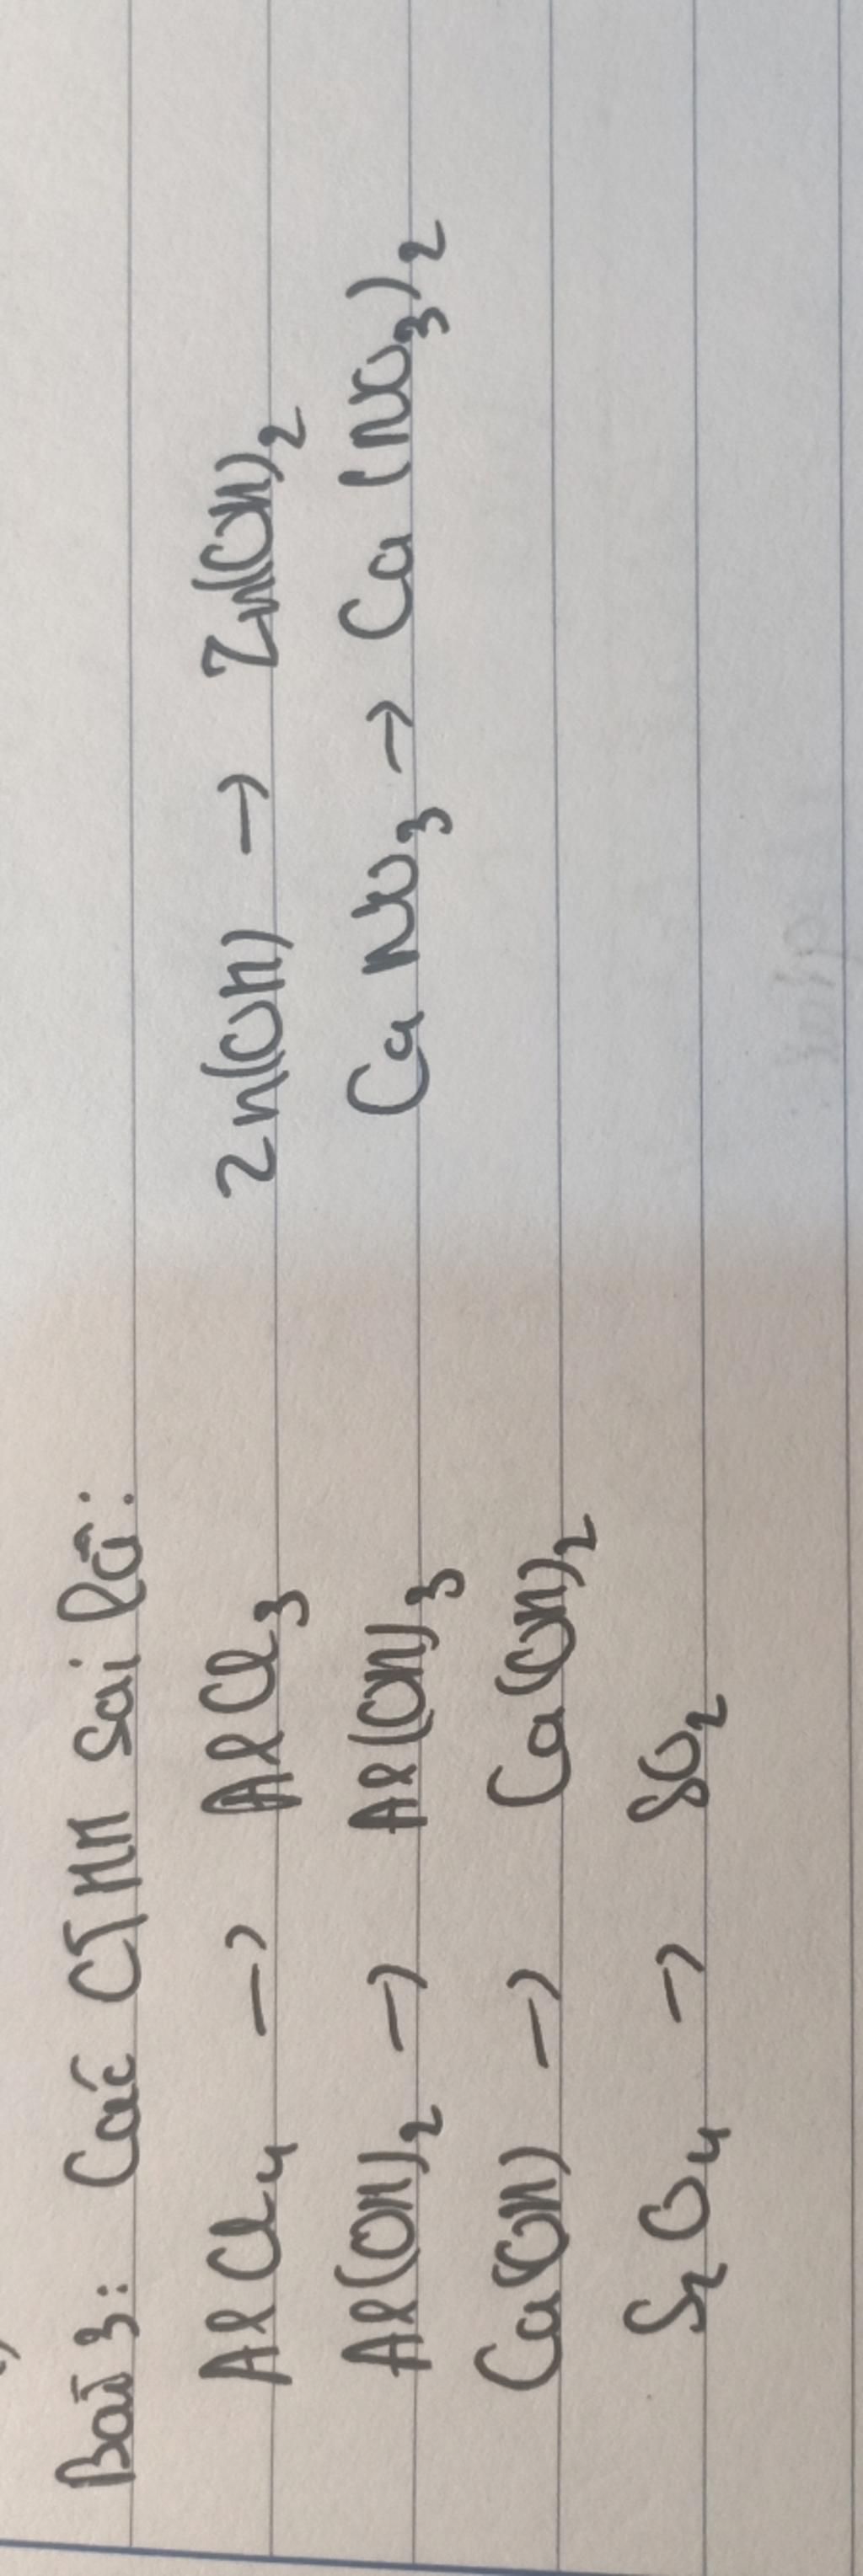 Bài 3: Các CTHH sai là:
AlCl₄ → AlCl₃ Zn(OH) → Zn(OH)₂
Al(OH)₂ → Al(OH)₃ CaNO₃ → Ca(NO₃)₂
Ca(OH) → Ca(OH)₂
S₂O₄ → SO₂